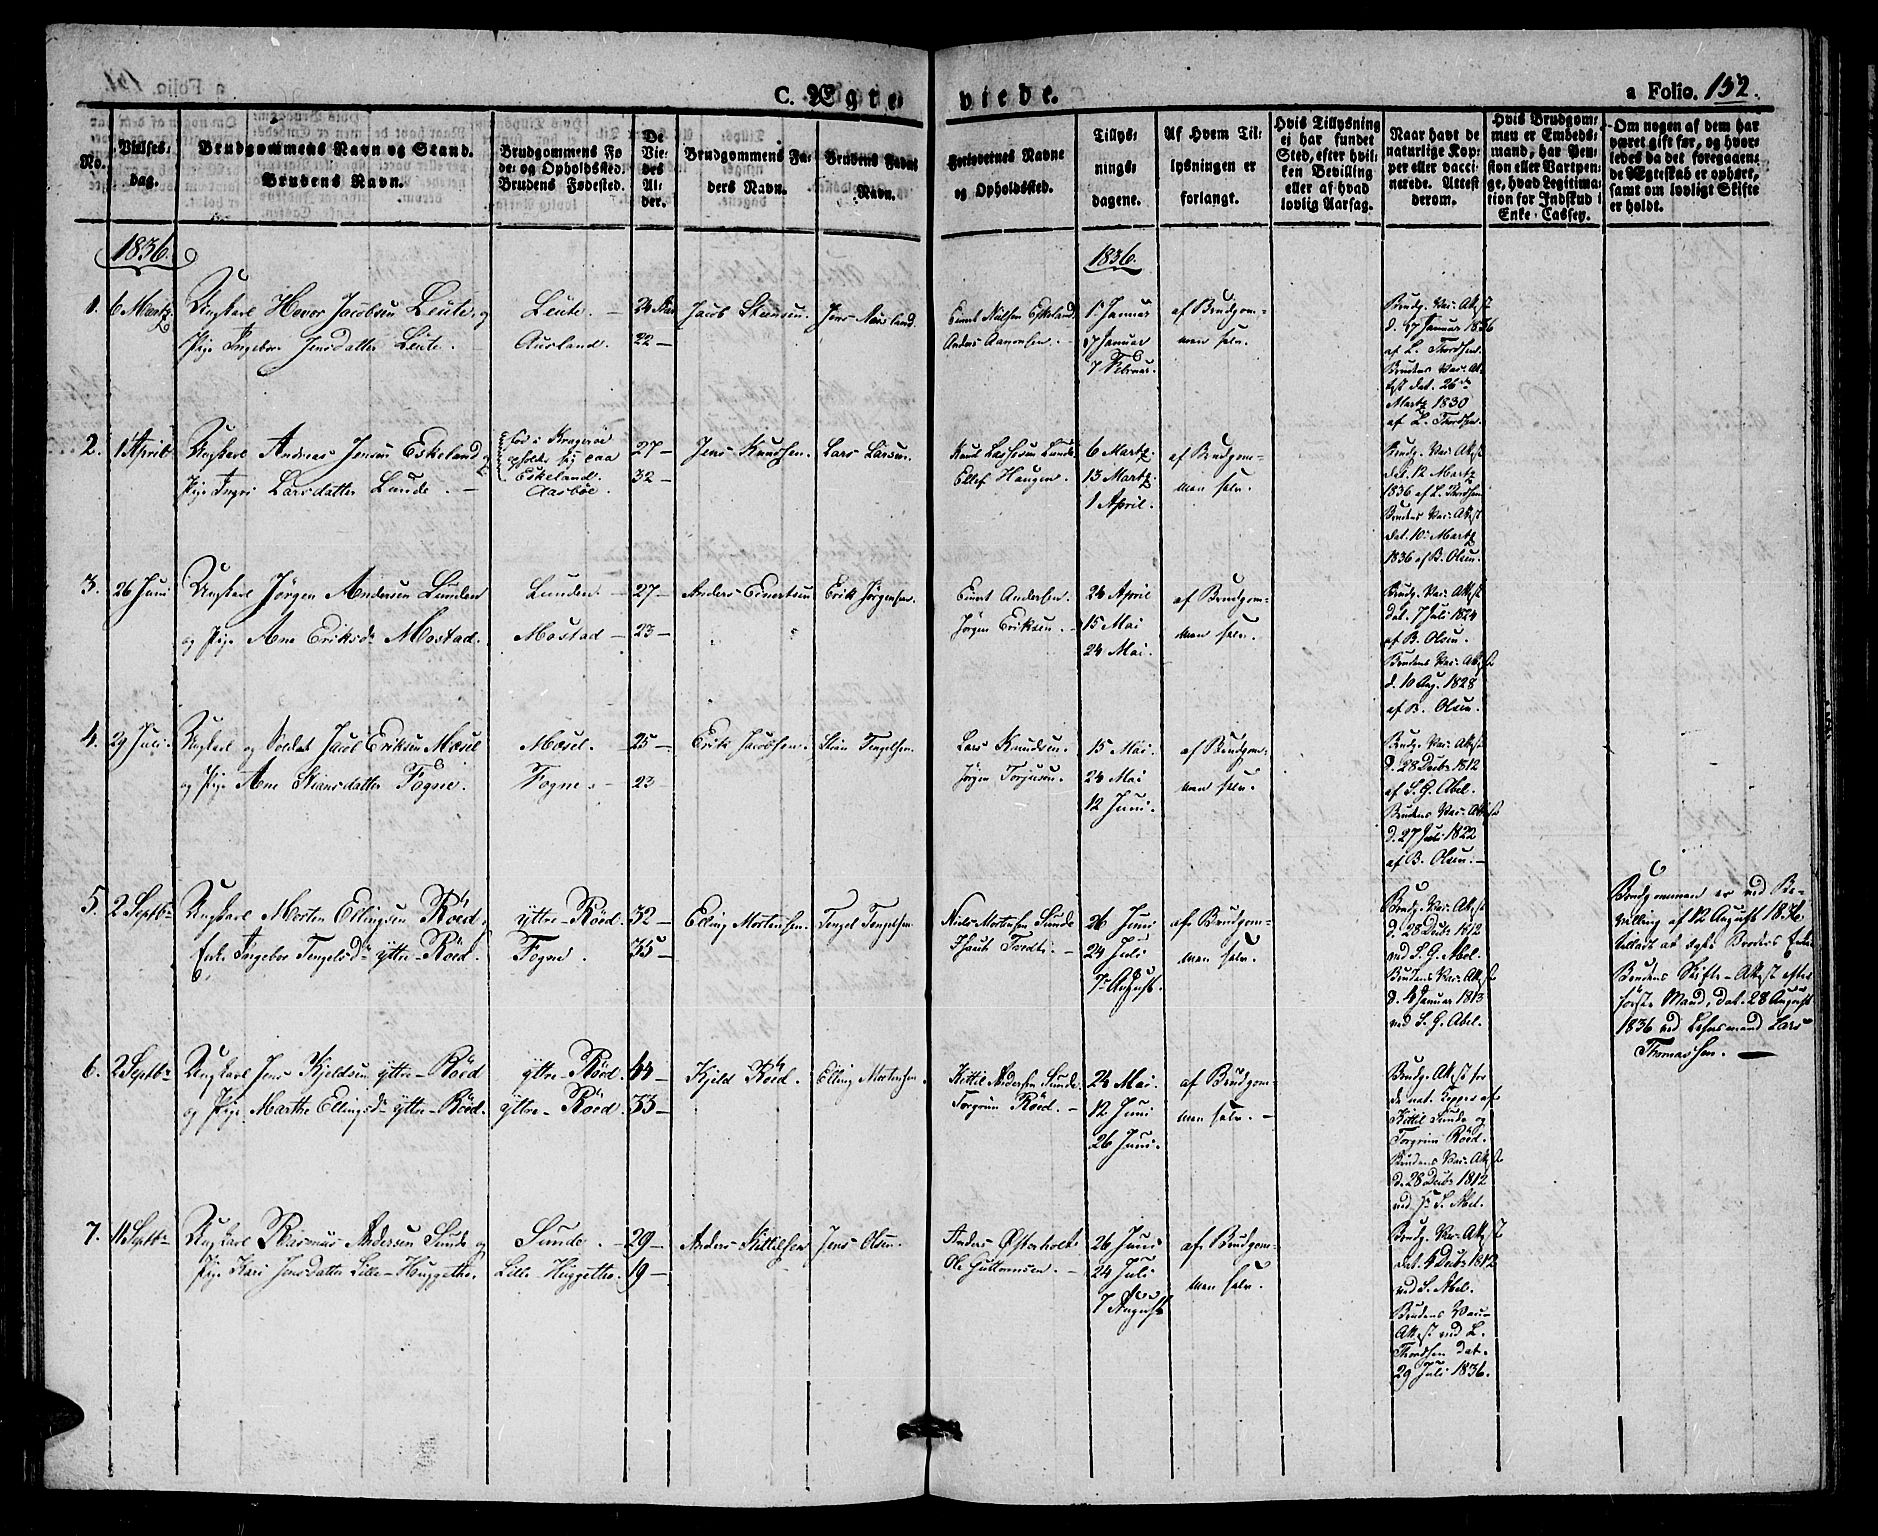 C. Ægte
viede.
a Folio. 152.
No.
Vielses-
dag.
Brudgommens Navn og Stand.
Brudens Navn.
Brudgommens Fø
de- og Opholdssted.
Brudens Fødested.
De
Vie-
des
Al-
der.
Brudgommens Fa-
ders Navn.
Brudens Fader
Navn.
Forlovernes Navne
og Opholdssted.
Tillys-
nings-
dagene.
Af Hvem Til-
lysningen er
forlangt.
Hvis Tillysning
ei har fundet
Sted, efter hvil-
ken Bevilling
eller af hvad
lovlig Aarsag.
Naar havt de
naturlige Kop-
per eller vacci-
nerede. Attest
derom.
Hvis Brudgom-
men er Embeds-
mand, har Pen-
sion eller Vartpen-
ge, hvad Legitima-
tion for Indskud i
Enke-Cassen.
Om nogen af dem har
været gift før, og hvor-
ledes da det foregaaen-
de Ægteskab er ophørt,
samt om lovligt Skifte
er holdt.
1836.
1836.
1. 6 Martz
Ungkarl Hovor Jacobsen Leute og
Pige Ingebor Jensdatter Leute.
Leute.
Ausland.
24 Aar
22
Jacob
Jens Ausland.
Anders Aanonsen.
1 Januar
17 Januar
7 Februar.
af Brudgom-
men selv.
Brudg. Vac. Attest
d. 17 Januar 1836
af L. Thordsen.
Brudens Vac. At-
test dat. 26de
Martz 1830
af L. Thordsen.
2. 1 April
Ungkarl Andreas Jensen Eskeland og
Pige Ingri Larsdatter Lunde.
fød i Kragerøe
opholder sig paa
Eskeland.
Aasbøe.
27
32
Jens Knudsen.
Lars Larsen.
Knut Lassesen Lunde
Ellef Haugen.
6 Martz.
13 Martz.
1 April.
af Brudgom-
men selv.
Brudg. Vac. Attest
dat. 12 Martz
1836 af L. Thordsen
Brudens Vac. Attest
dat. 10 Martz
1836 af B. Olsen.
3. 26 Juni
Ungkarl Jørgen Andersen Lunden
og Pige Ane Eriksdr Mostad.
Lunden
Mostad
27
23
Anders Einertsen
Erik Jørgensen.
Einert Andersen.
Jørgen Eriksen.
24 April
15 Mai
24 Mai.
af Brudgom-
men selv.
Brudg. Vac. Attest
dat. 7 Juli 1824
af B. Olsen.
Brudens Vac. Attest
d. 10 Aug. 1828
af B. Olsen.
4. 29 Juli.
Ungkarl og Soldat Jacob Eriksen Mosel
og Pige Ane Stiansdatter Fogne.
Mosel.
Fogne.
25
23
Erik Jacobsen.
Stian Tengelsen.
Lars Knudsen.
Jørgen Torjusen.
15 Mai.
24 Mai
12 Juni.
af Brudgom-
men selv.
Brudg. Vac. Attest
d. 28 Decbr 1812
af S. G. Abel.
Brudens Vac. Attest
d. 27 Juli 1822
af B. Olsen.
5. 2 Septbr
Ungkarl Morten Ellingsen Røed og
Enke Ingebor Tengelsdr yttre-Røed.
yttre-Røed.
Fogne.
32
35
Elling Mortensen.
Tengel Tengelsen
Niels Mortensen Sunde
Jacob Tvedte.
26 Juni
24 Juli
7 August.
af Brudgom-
men selv.
Brudg. Vac. Attest
d. 28 Decbr 1812
ved S. G. Abel.
Brudens Vac. Attest
d. 4 Januar 1813
ved S. G. Abel.
Brudgommen er ved Be-
villing af 12 August 1836
tilladt at ægte Broders Enke
Brudens Skifte-Attest efter
første Mand, dat. 28 August
1836 ved Lehnsmand Lars
Thomassen.
6. 2 Septbr
Ungkarl Jens Kjeldsen yttre-Røed
og Pige Marthe Ellingsdr yttre-Røed.
yttre-Røed.
yttre-Røed.
44
33
Kjeld Røed.
Elling Mortensen.
Kittil Andersen Sunde
Torgrim Røed.
24 Mai.
12 Juni.
26 Juni.
af Brudgom-
men selv.
Brudg. Attest for
de nat. Kopper af
Kittil Sunde og
Torgrim Røed.
Brudens Vac. Attest
d. 28 Decbr 1812
ved Hr S. Abel.
7. 11 Septbr
Ungkarl Rasmus Andersen Sunde og
Pige Kari Jensdatter Lille-Huggethe.
Sunde.
Lille-Huggethe.
29
19
Anders Kittilsen
Jens Olsen.
Anders Østerholt
Ole Guttormsen.
26 Juni
24 Juli
7 August
af Brudgom-
men selv.
Brudg. Vac. Attest
dat. 4 Decbr 1812
ved S. Abel.
Brudens Vac-
Attest ved L.
Thordsen dat.
29 Juli 1836.